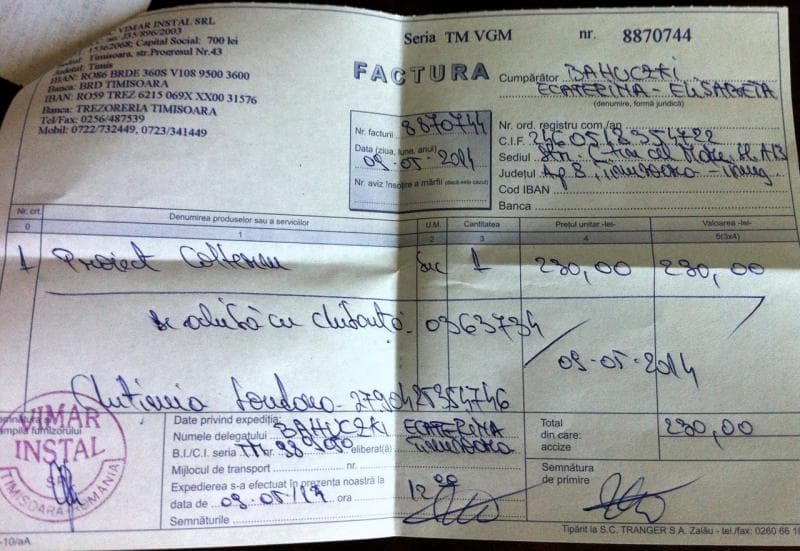 VIMAR INSTAL SRL
J35/896/2003
15362068; Capital Social: 700 lei
Timisoara, str.Progresul Nr.43
Judetul: Timis
IBAN: RO86 BRDE 360S V108 9500 3600
Banca: BRD TIMISOARA
IBAN: RO59 TREZ 6215 069X XX00 31576
Banca: TREZORERIA TIMISOARA
Tel/Fax: 0256/487539
Mobil: 0722/732449, 0723/341449
Seria TM VGM nr. 8870744
FACTURA
Nr. facturii 8870744
Data (ziua, luna, anul)
09-05-2014
Nr. aviz însoțire a mărfii (dacă este cazul)
Cumpărător BAHUCZKI
ECATERINA-ELISABETA
(denumire, formă juridică)
Nr. ord. registru com./an
C.I.F. 2460518354722
Sediul
Județul Ap 8, Timisoara - Timiș
Cod IBAN
Banca
Nr. crt. Denumirea produselor sau a serviciilor U.M. Cantitatea Prețul unitar -lei- Valoarea -lei-
0 1 2 3 4 5(3x4)
1 Proiect buc 1 230,00 230,00
se achită cu chitanța: 0363734
09-05-2014
2790425354746
Semnătura și
ștampila furnizorului
VIMAR
INSTAL
SRL
TIMISOARA-ROMANIA
Date privind expediția:
Numele delegatului BAHUCZKI ECATERINA
B.I./C.I. seria TM nr. eliberat(ă) TIMISOARA
Mijlocul de transport nr.
Expedierea s-a efectuat în prezența noastră la
data de 09-05/14 ora 12 00
Semnăturile
Total
din care:
accize
230,00
Semnătura
de primire
-10/aA
Tipărit la S.C. TRANGER S.A. Zalău - tel./fax: 0260 66 16